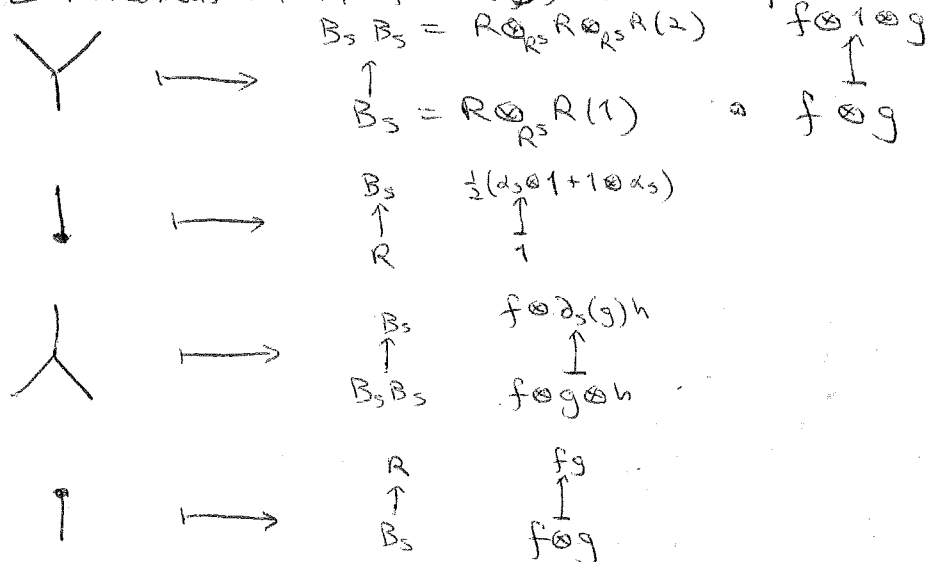 B_s B_s = R⊗_{R^s} R⊗_{R^s} R(2) f⊗1⊗g
↦ ↑ ↥
B_s = R⊗_{R^s} R(1) f⊗g
B_s ½(α_s⊗1+1⊗α_s)
↦ ↑ ↥
R 1
B_s f⊗∂_s(g)h
↦ ↑ ↥
B_s B_s f⊗g⊗h
R fg
↦ ↑ ↥
B_s f⊗g